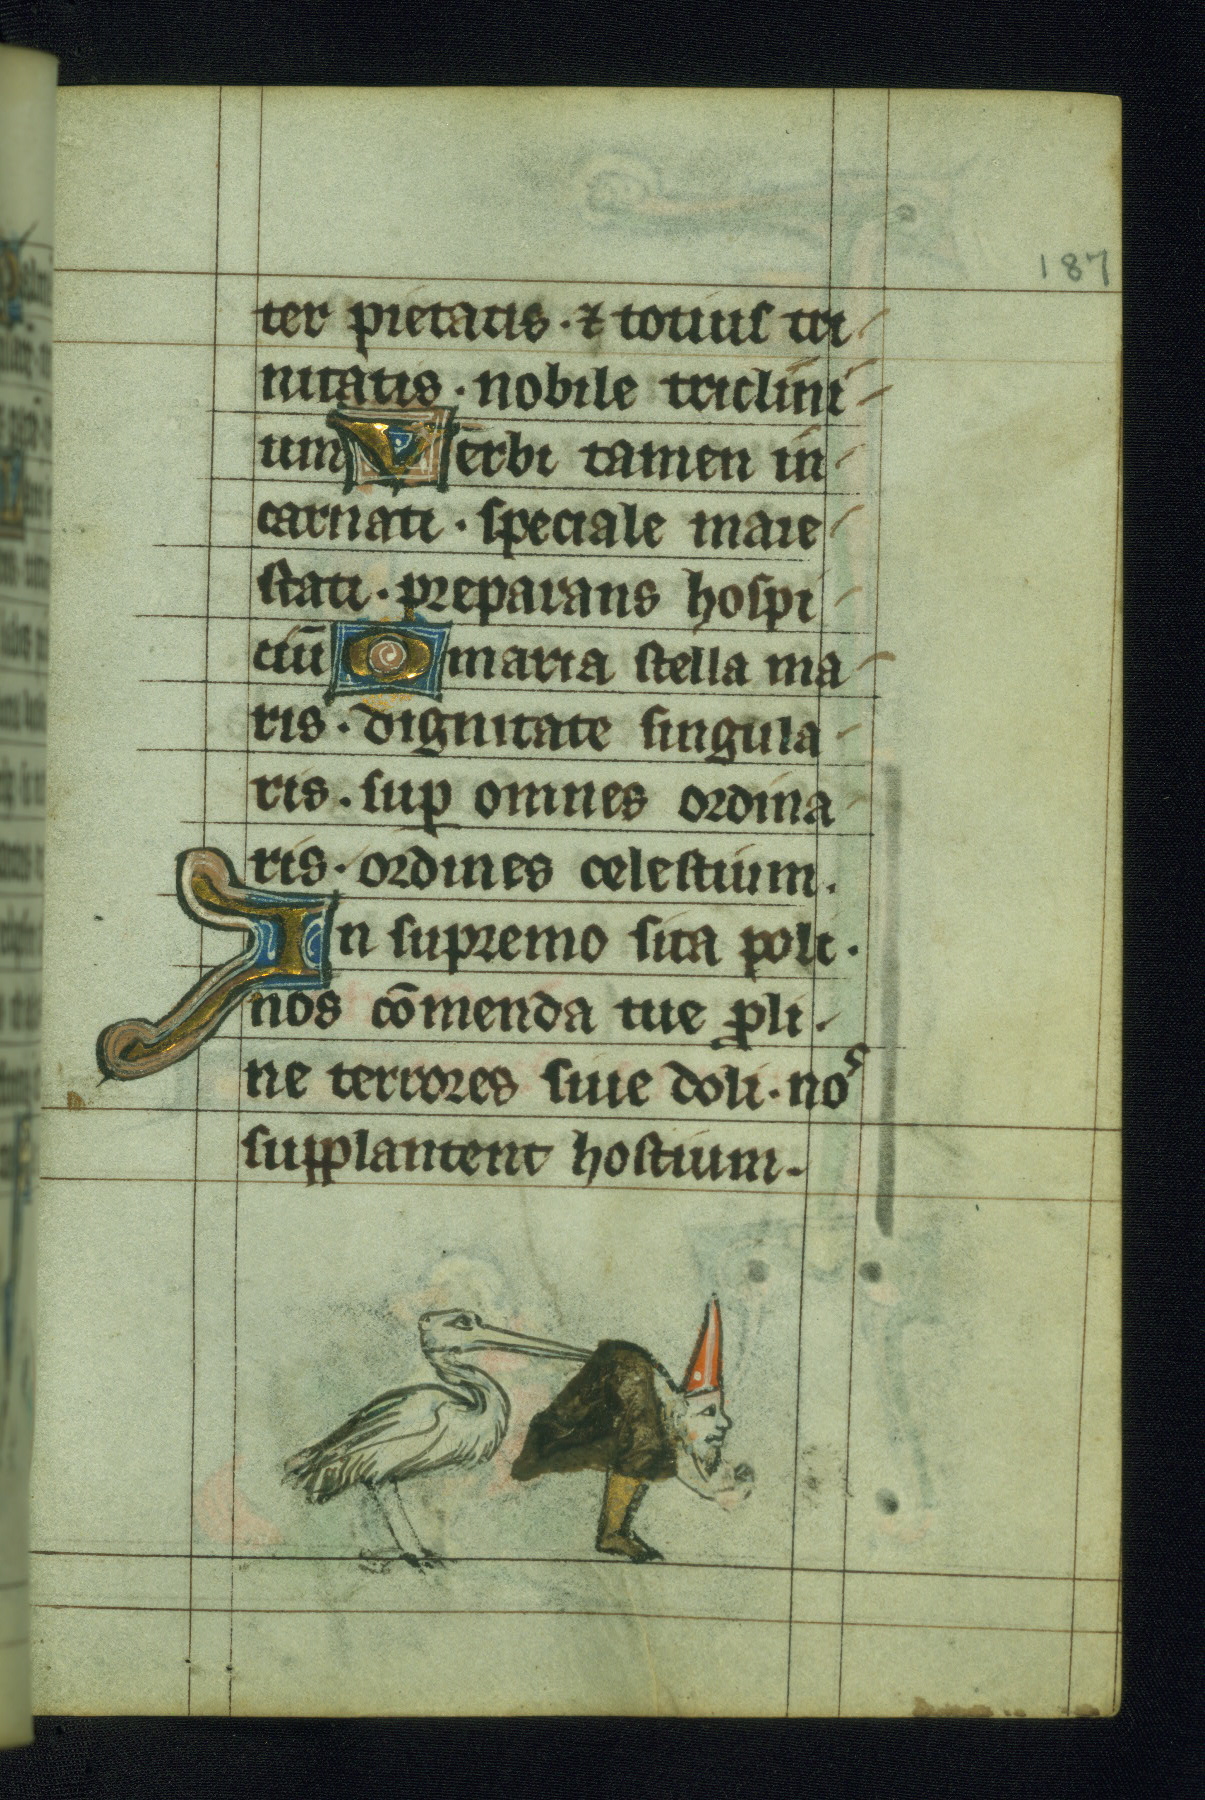 187
ter pietatis · ⁊ totiuſ tri
nitatis · nobile triclini
um Verbi tamen in
carnati · ſpeciale maie
ſtati · preparans hoſpi
ciū O maria ſtella ma
ris · dignitate ſingula
ris · ſuꝑ omnes ordina
ris · ordines celeſtium.
In ſupremo ſita poli ·
nos cōmenda tue ꝓli ·
ne terrores ſiue doli · noˢ
ſupplantent hoſtium ·